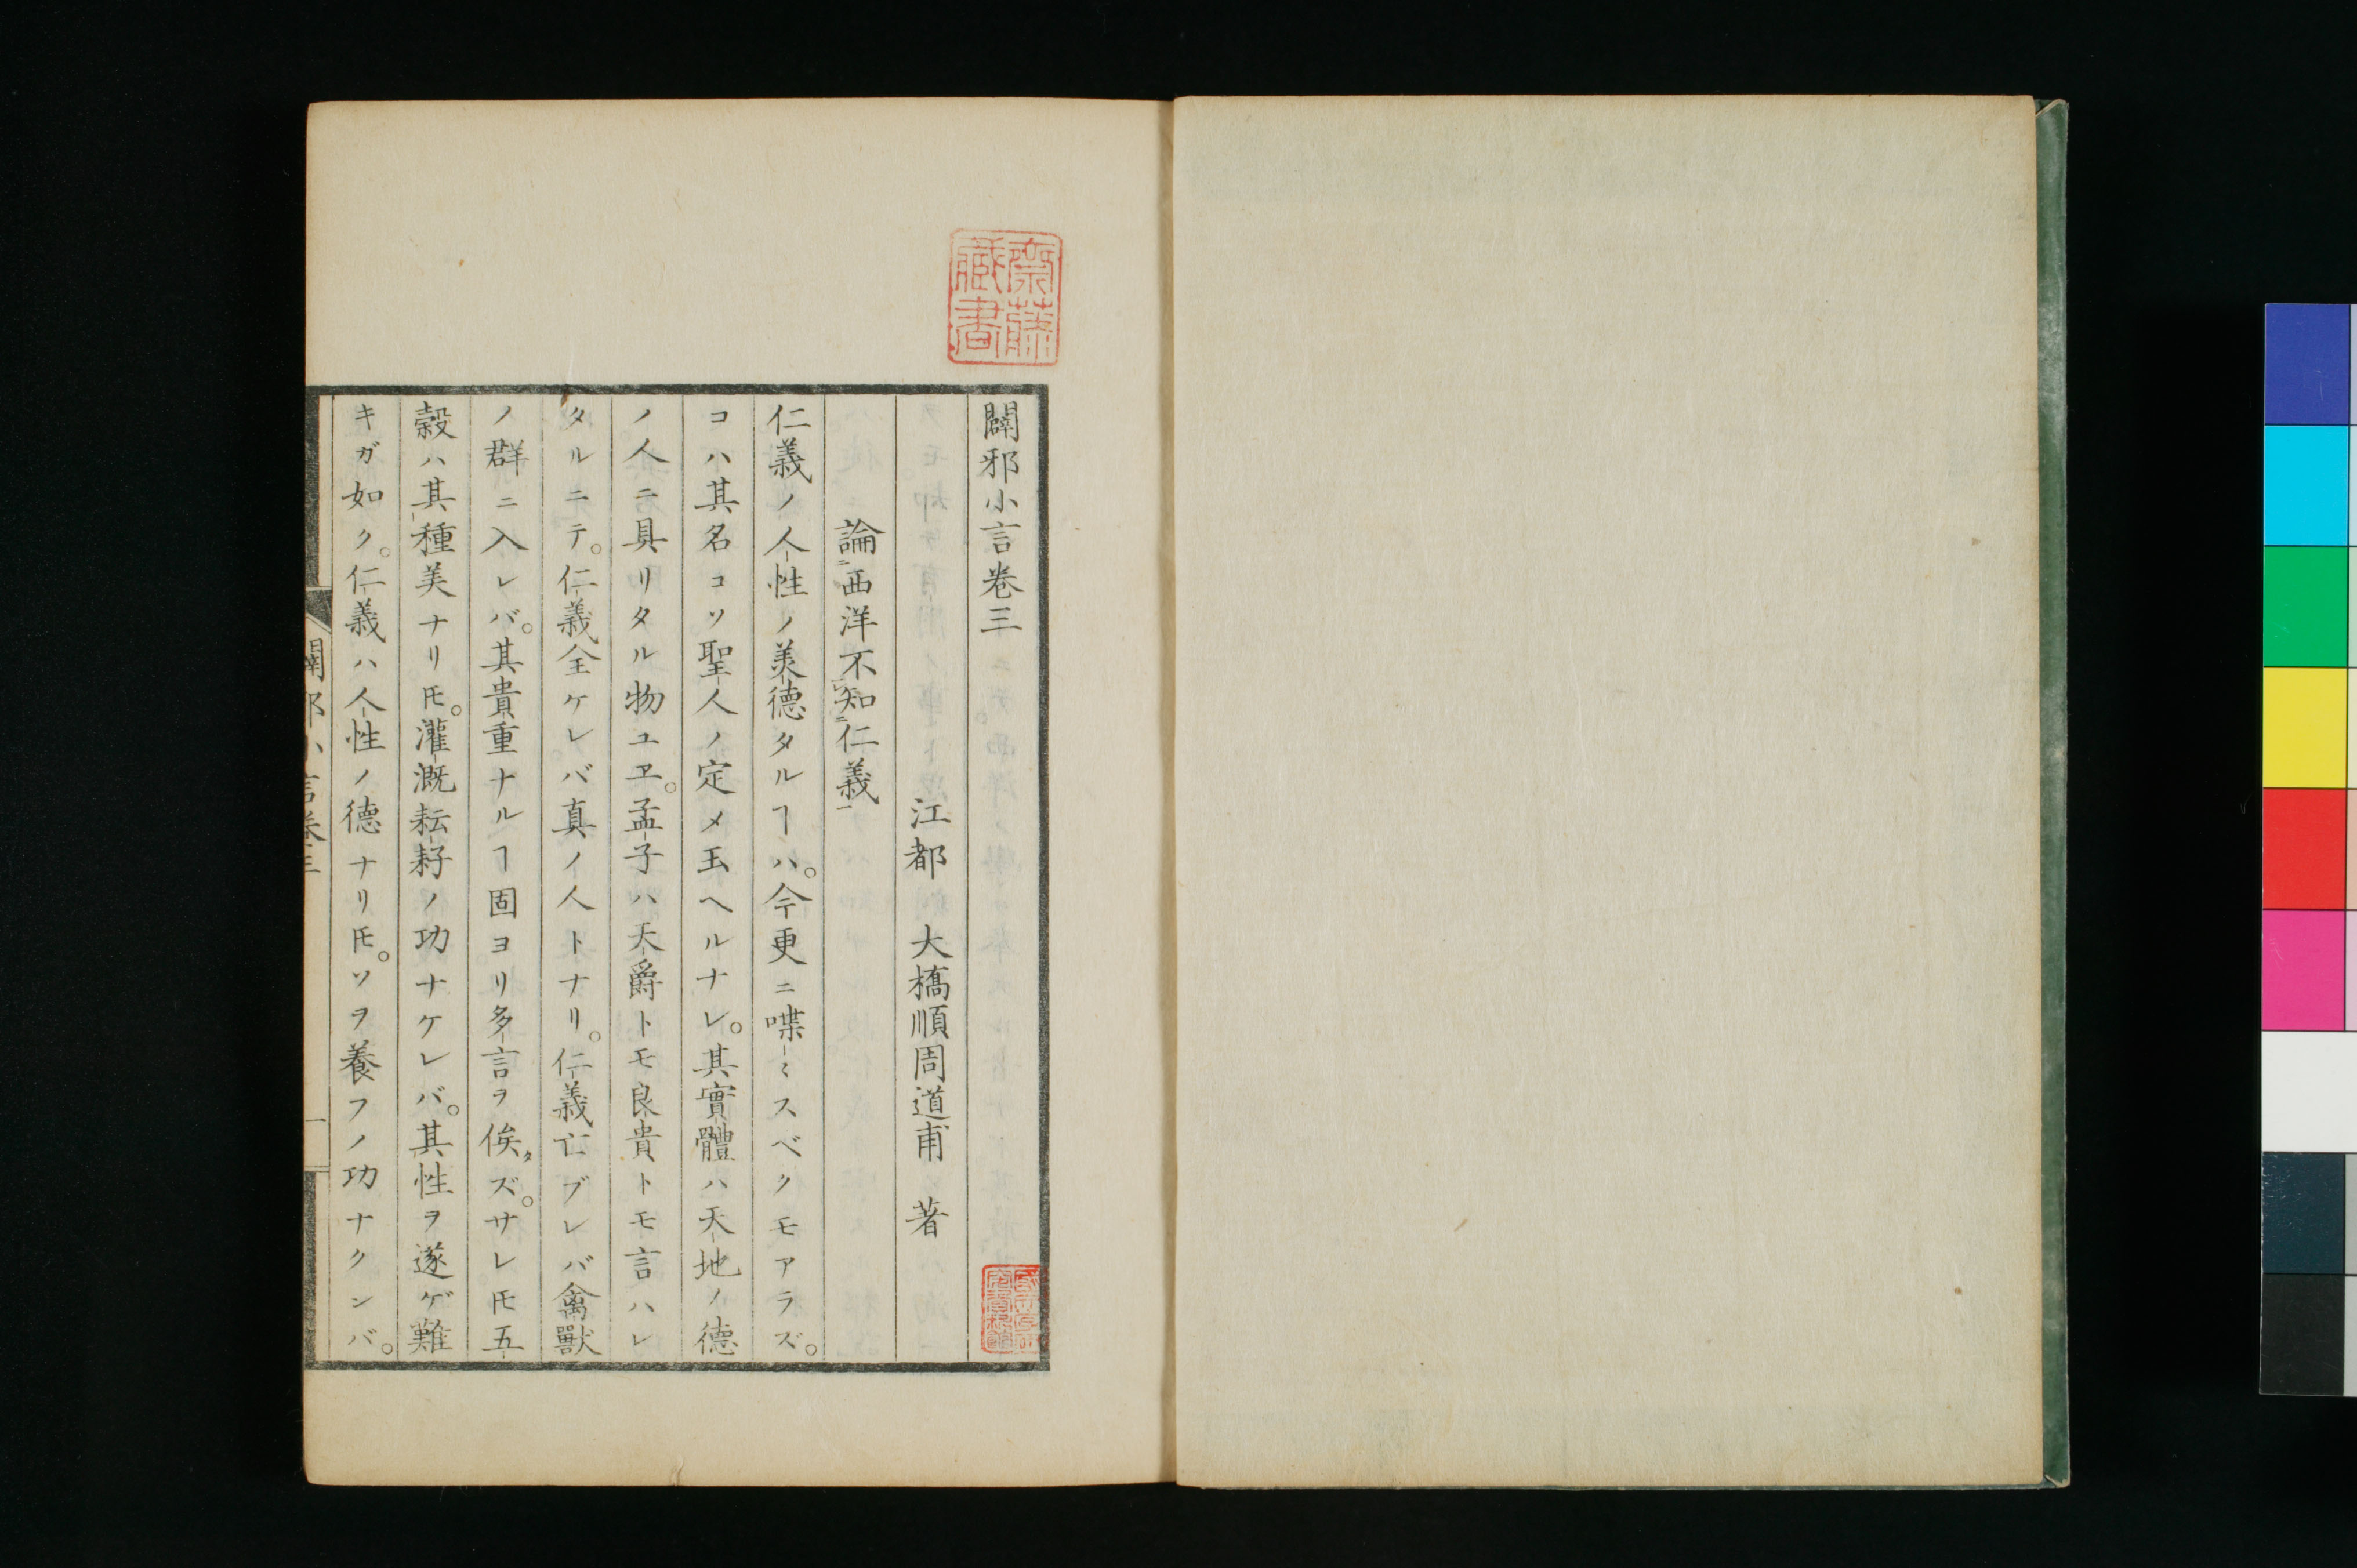 闢邪小言卷三
江都 大橋順周道甫 著
論㆓西洋不㆑知㆓仁義㆒
仁義ノ人性ノ美德タルヿハ。今更ニ喋〻スベクモアラズ。
コハ其名コソ聖人ノ定メ玉ヘルナレ。其實體ハ天地ノ德
ノ人ニ具リタル物ユヱ。孟子ハ天爵トモ良貴トモ言ハレ
タルニテ。仁義全ケレバ真ノ人トナリ。仁義亡ブレバ禽獸
ノ群ニ入レバ。其貴重ナルヿ固ヨリ多言ヲ俟タズ。サレ𪜈五
穀ハ其種美ナリ𪜈。灌漑耘耔ノ功ナケレバ。其性ヲ遂ゲ難
キガ如ク。仁義ハ人性ノ德ナリ𪜈。ソヲ養フノ功ナクンバ。
闢邪小言卷三
一
齋藤
藏書